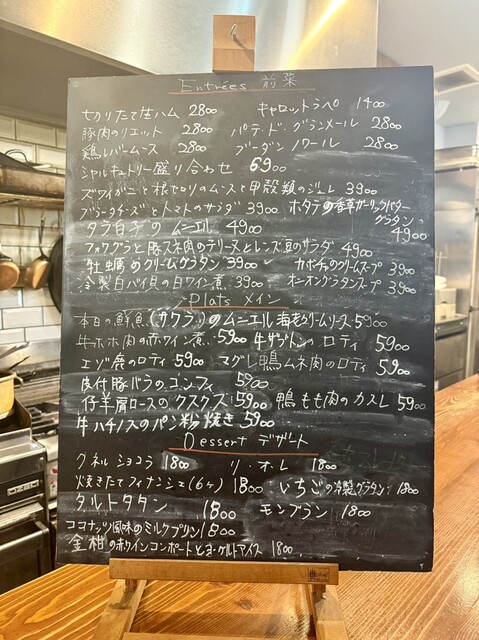 Entrées 前菜
切りたて生ハム 2800 キャロットラペ 1400
豚肉のリエット 2800 パテ・ド・グランメール 2800
鶏レバームース 2800 ブーダンノワール 2800
シャルキュトリー盛り合わせ 6900
ズワイガニと根セロリのムースと甲殻類のジュレ 3900
ブラータチーズとトマトのサラダ 3900 ホタテの香草ガーリックバターグラタン 4900
タラ白子のムニエル 4900
フォワグラと豚スネ肉のテリーヌとレンズ豆のサラダ 4900
牡蠣のクリームグラタン 3900 カボチャのクリームスープ 3900
冷製白バイ貝の白ワイン煮 3900 オニオングラタンスープ 3900
Plats メイン
本日の鮮魚(サワラ)のムニエル海老クリームソース 5900
牛ホホ肉の赤ワイン煮 5900 牛ザブトンのロティ 5900
エゾ鹿のロティ 5900 マグレ鴨ムネ肉のロティ 5900
皮付豚バラのコンフィ 5900
仔羊肩ロースのクスクス 5900 鴨もも肉のカスレ 5900
牛ハチノスのパン粉焼き 5900
Dessert デザート
クネルショコラ 1800 リ・オ・レ 1800
焼きたてフィナンシェ(6ヶ) 1800 いちごの冷製グラタン 1800
タルトタタン 1800 モンブラン 1800
ココナッツ風味のミルクプリン 1800
金柑の赤ワインコンポートとヨーグルトアイス 1800